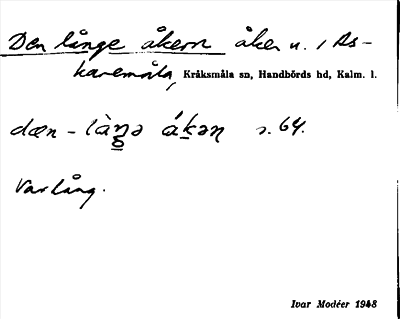 Den långe åkern åker n. i As-
karemåla, Kråksmåla sn, Handbörds hd, Kalm. l.
dæn - làŋə ákən s. 64.
Var lång.
Ivar Modéer 1948